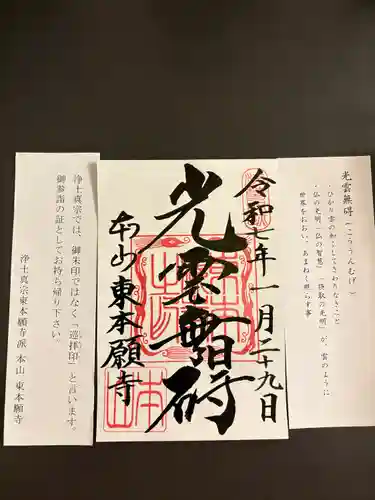 光雲無碍(こううんむげ)
・ひかり雲の如くしてさわりなきこと
・仏の光明「仏の智慧」「摂取の光明」が、雲のように
世界をおおい、あまねく照らす事
令和二年一月二十九日
光雲無碍
本山東本願寺
浄土真宗では、御朱印ではなく「巡拝印」と言います。
御参詣の証としてお持ち帰り下さい。
浄土真宗東本願寺派 本山 東本願寺